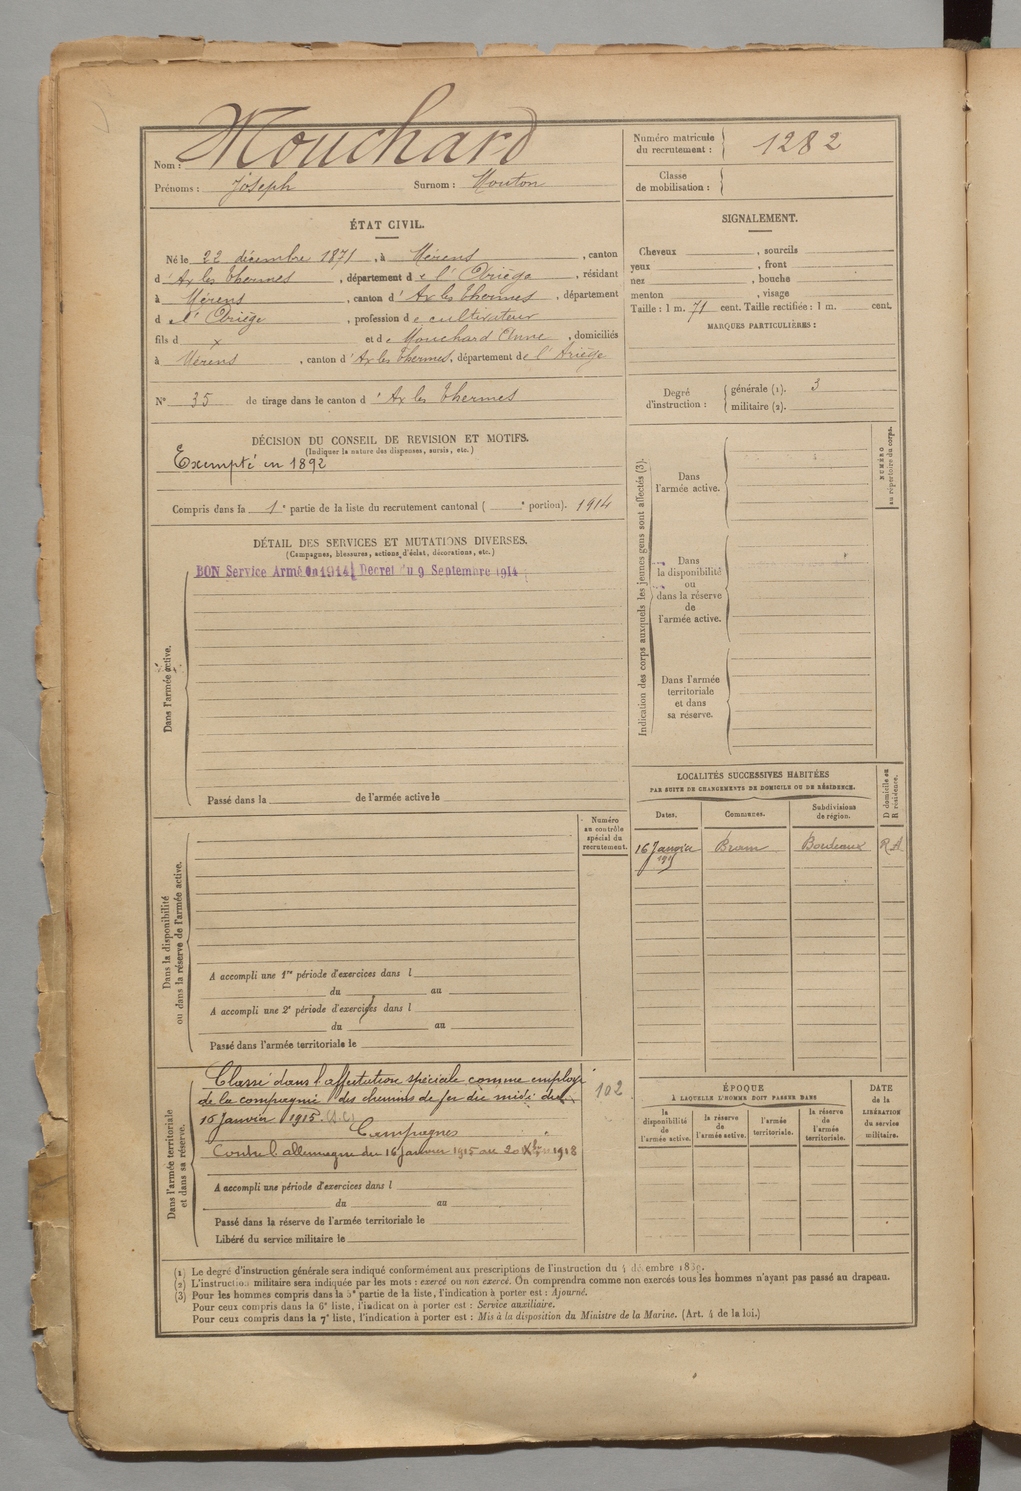 Nom : Mouchard
Prénoms : Joseph Surnom : Mouton
Numéro matricule
du recrutement : 1282
Classe
de mobilisation :
ÉTAT CIVIL.
Né le 22 décembre 1871, à Mérens, canton
d'Ax les Thermes, département de l'Ariège, résidant
à Mérens, canton d'Ax les Thermes, département
d l'Ariège, profession de cultivateur
fils d x et de Mouchard Anne, domiciliés
à Mérens, canton d'Ax les Thermes, département de l'Ariège
N° 35 de tirage dans le canton d'Ax les Thermes
SIGNALEMENT.
Cheveux , sourcils
yeux , front
nez , bouche
menton , visage
Taille : 1 m. 71 cent. Taille rectifiée : 1 m. cent.
MARQUES PARTICULIÈRES :
Degré
d'instruction :
générale (1). 3
militaire (2).
DÉCISION DU CONSEIL DE REVISION ET MOTIFS.
(Indiquer la nature des dispenses, sursis, etc.)
Exempté en 1892
Compris dans la 1e partie de la liste du recrutement cantonal ( e portion). 1914
DÉTAIL DES SERVICES ET MUTATIONS DIVERSES.
(Campagnes, blessures, actions d'éclat, décorations, etc.)
BON Service Armé en 1914 Décret du 9 Septembre 1914
Dans l'armée active.
Passé dans la de l'armée active le
Indication des corps auxquels les jeunes gens sont affectés (3).
Dans
l'armée active.
Dans
la disponibilité
ou
dans la réserve
de
l'armée active.
Dans l'armée
territoriale
et dans
sa réserve.
NUMÉRO
au répertoire du corps.
LOCALITÉS SUCCESSIVES HABITÉES
PAR SUITE DE CHANGEMENTS DE DOMICILE OU DE RÉSIDENCE.
D domicile ou
R résidence.
Dates. Communes. Subdivisions
de région.
16 Janvier Bram Bordeaux R A
1915
Numéro
au contrôle
spécial du
recrutement.
Dans la disponibilité
ou dans la réserve de l'armée active.
A accompli une 1re période d'exercices dans l
du au
A accompli une 2e période d'exercices dans l
du au
Passé dans l'armée territoriale le
Dans l'armée territoriale
et dans sa réserve.
Classé dans l'affectation spéciale comme employé
de la compagnie des chemins de fer du midi du
16 Janvier 1915.
102
Campagnes
Contre l'allemagne du 16 janvier 1915 au 20 Xbre 1918
A accompli une période d'exercices dans l
du au
Passé dans la réserve de l'armée territoriale le
Libéré du service militaire le
ÉPOQUE
À LAQUELLE L'HOMME DOIT PASSER DANS
la
disponibilité
de
l'armée active.
la réserve
de
l'armée active.
l'armée
territoriale.
la réserve
de
l'armée
territoriale.
DATE
de la
LIBÉRATION
du service
militaire.
(1) Le degré d'instruction générale sera indiqué conformément aux prescriptions de l'instruction du 4 décembre 1889.
(2) L'instruction militaire sera indiquée par les mots : exercé ou non exercé. On comprendra comme non exercés tous les hommes n'ayant pas passé au drapeau.
(3) Pour les hommes compris dans la 5e partie de la liste, l'indication à porter est : Ajourné.
Pour ceux compris dans la 6e liste, l'indication à porter est : Service auxiliaire.
Pour ceux compris dans la 7e liste, l'indication à porter est : Mis à la disposition du Ministre de la Marine. (Art. 4 de la loi.)